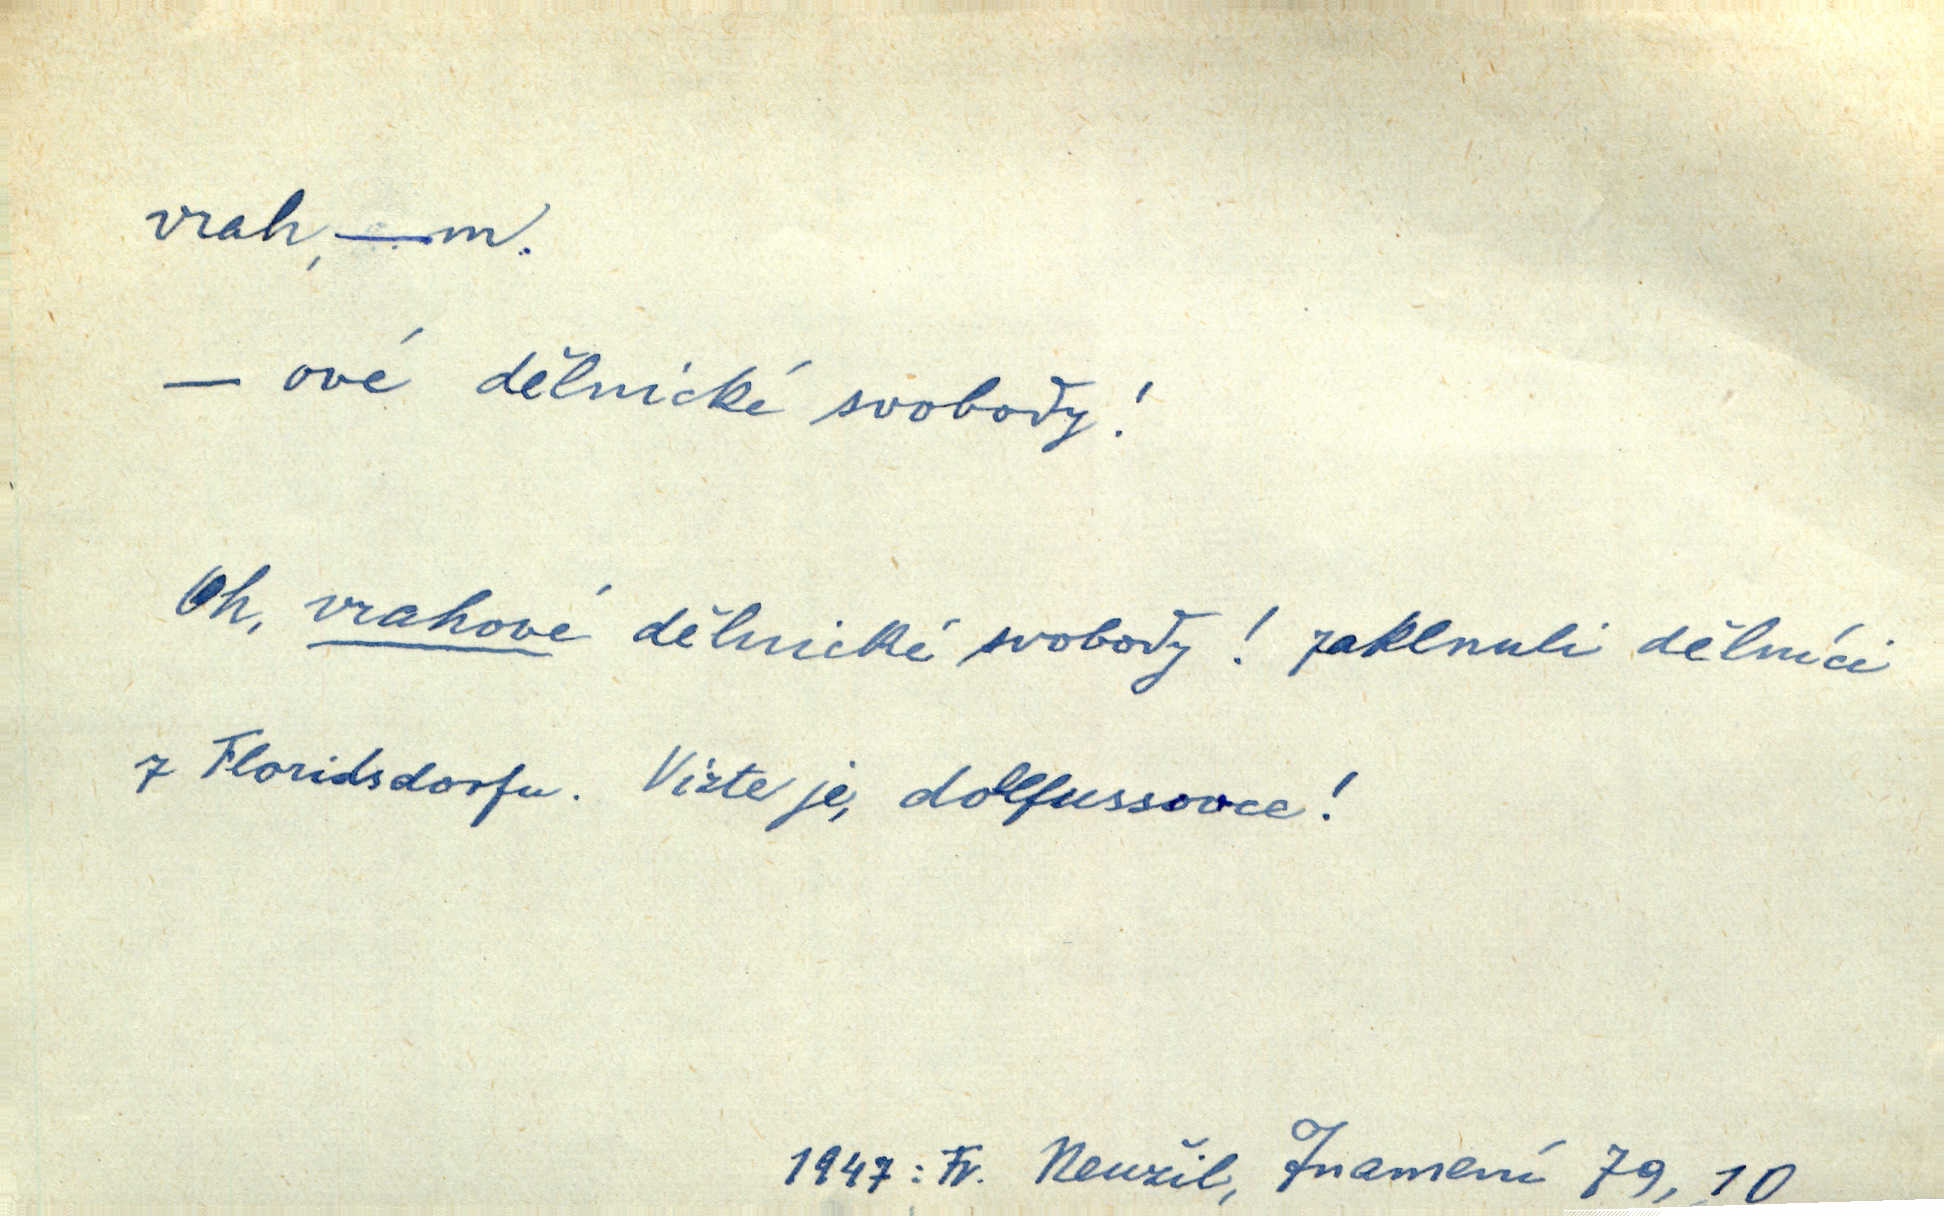 vrah, — m.
— ové dělnické svobody!
Oh, vrahové dělnické svobody! zaklnuli dělníci
z Floridsdorfu. Vizte je, dollfussovce!
1947: Fr. Neužil, Znamení 79, 10